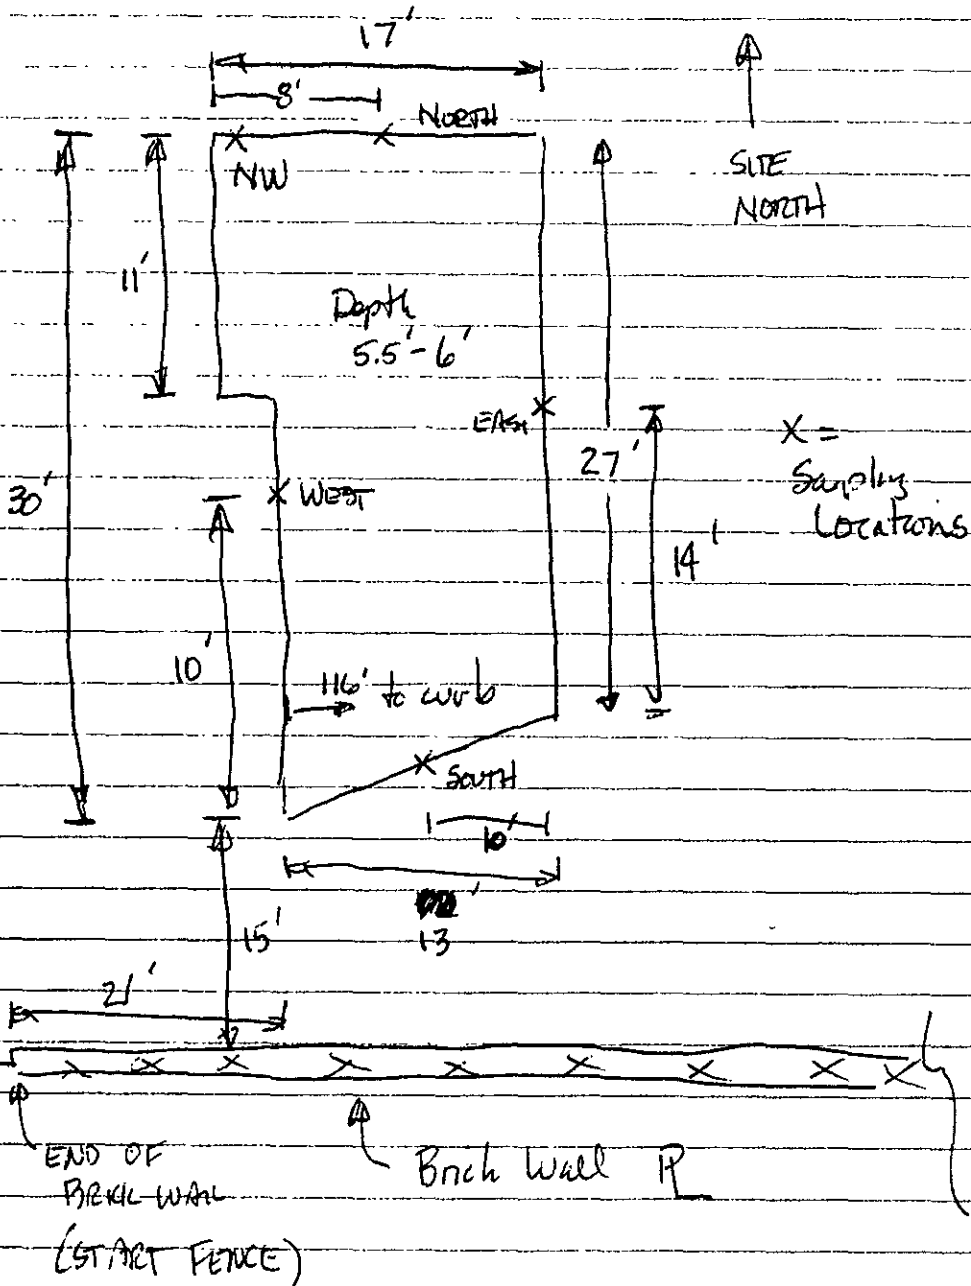 17'
8'
NORTH
NW
SITE
NORTH
11'
Depth
5.5'-6'
EAST
X =
Sampling
Locations
27'
30'
WEST
14'
10'
116' to curb
SOUTH
10'
'
13
15'
21'
END OF
BRICK WALL
(START FENCE)
Brick Wall PL